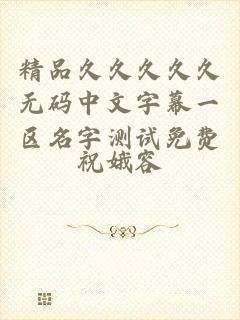 精品久久久久久
无码中文字幕一
区名字测试免费
祝娥容